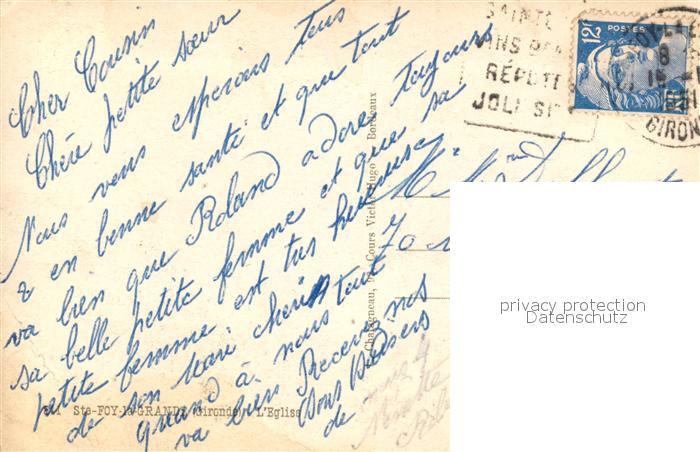 Cher Cousin
Chère petite sœur
Nous vous esperons tous
& en bonne santé et que tout
va bien que Roland adore toujours
sa belle petite femme et que sa
petite femme est très heureuse
de son Mari chéri
quand à nous tout
va bien Recevez nos
Doux Baisers
de
SAINTE
VINS
RÉPUT
JOLI SI
12F
POSTES
8
1951
GIRON
M. Mme
Chatagneau, 97, Cours Victor-Hugo - Bordeaux
Ste-FOY-la-GRANDE (Gironde) L'Eglise
privacy protection
Datenschutz